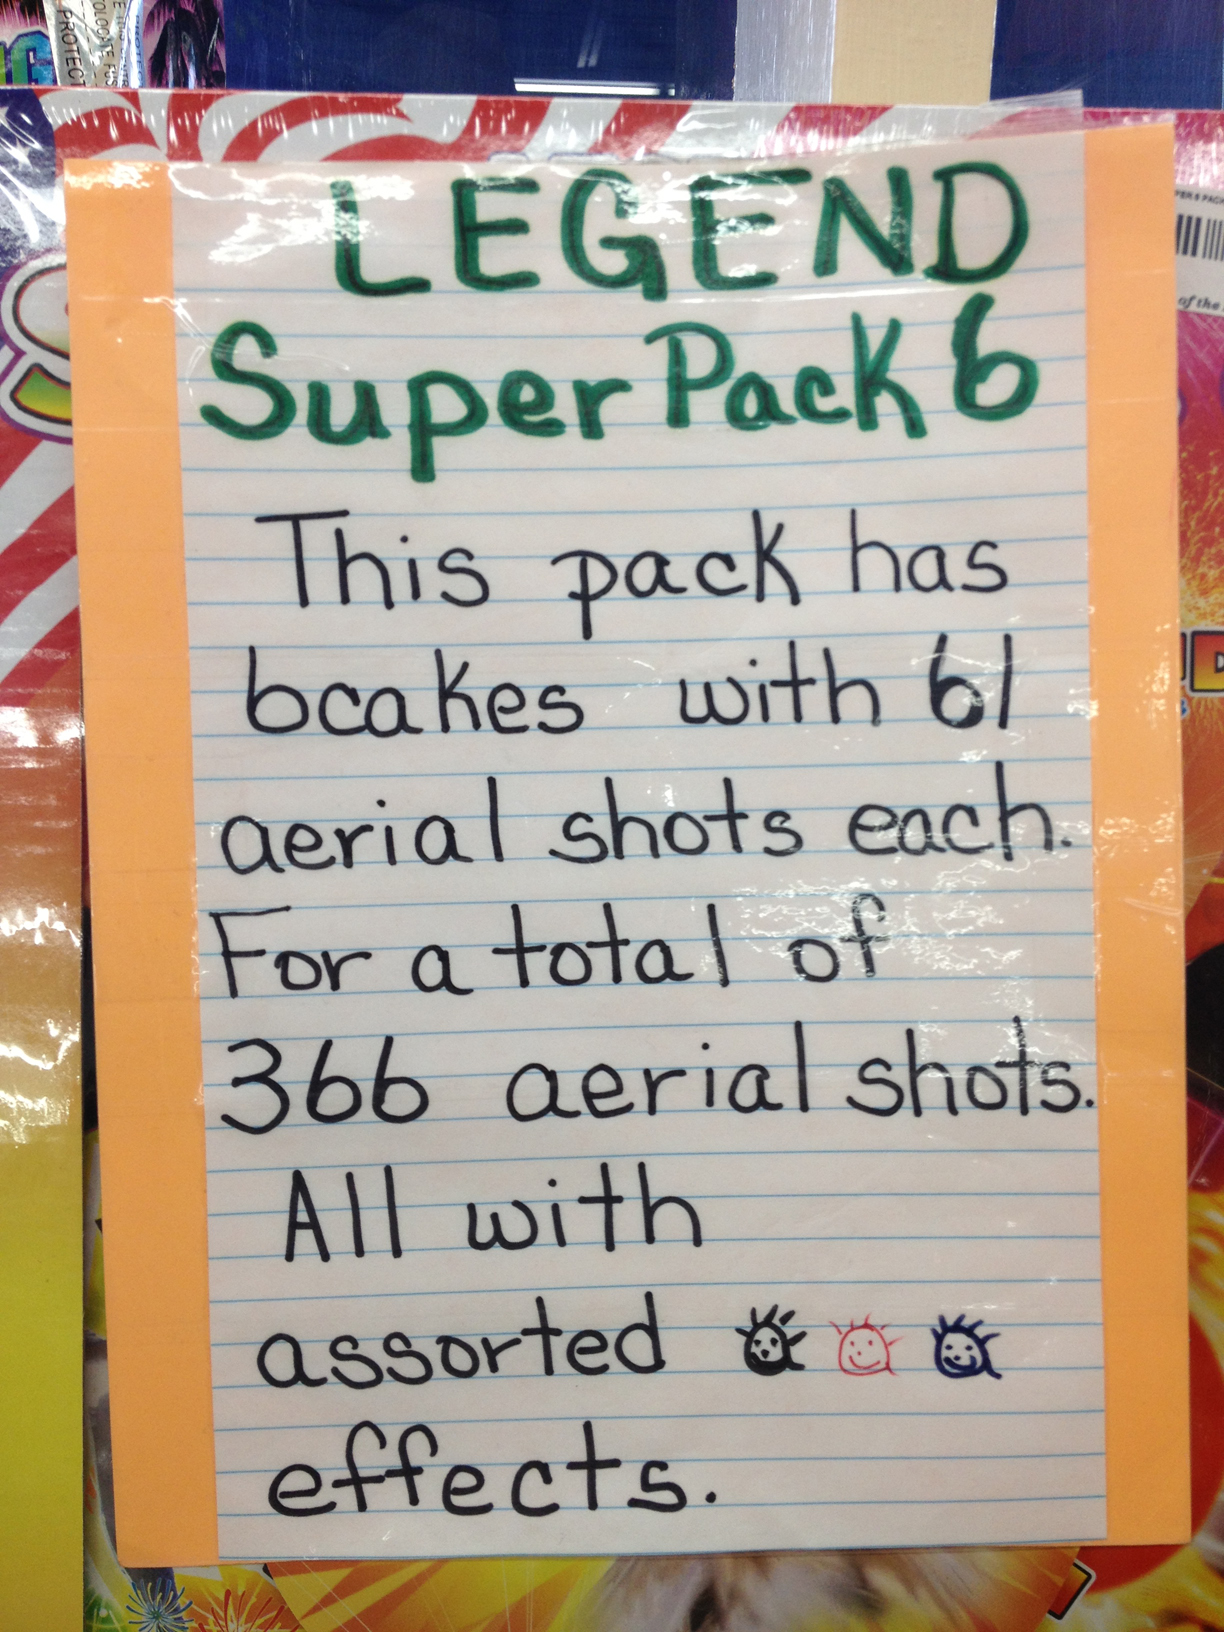 LEGEND
Super Pack 6
This pack has
6cakes with 61
aerial shots each.
For a total of
366 aerial shots.
All with
assorted
effects.
PROTECT
of the